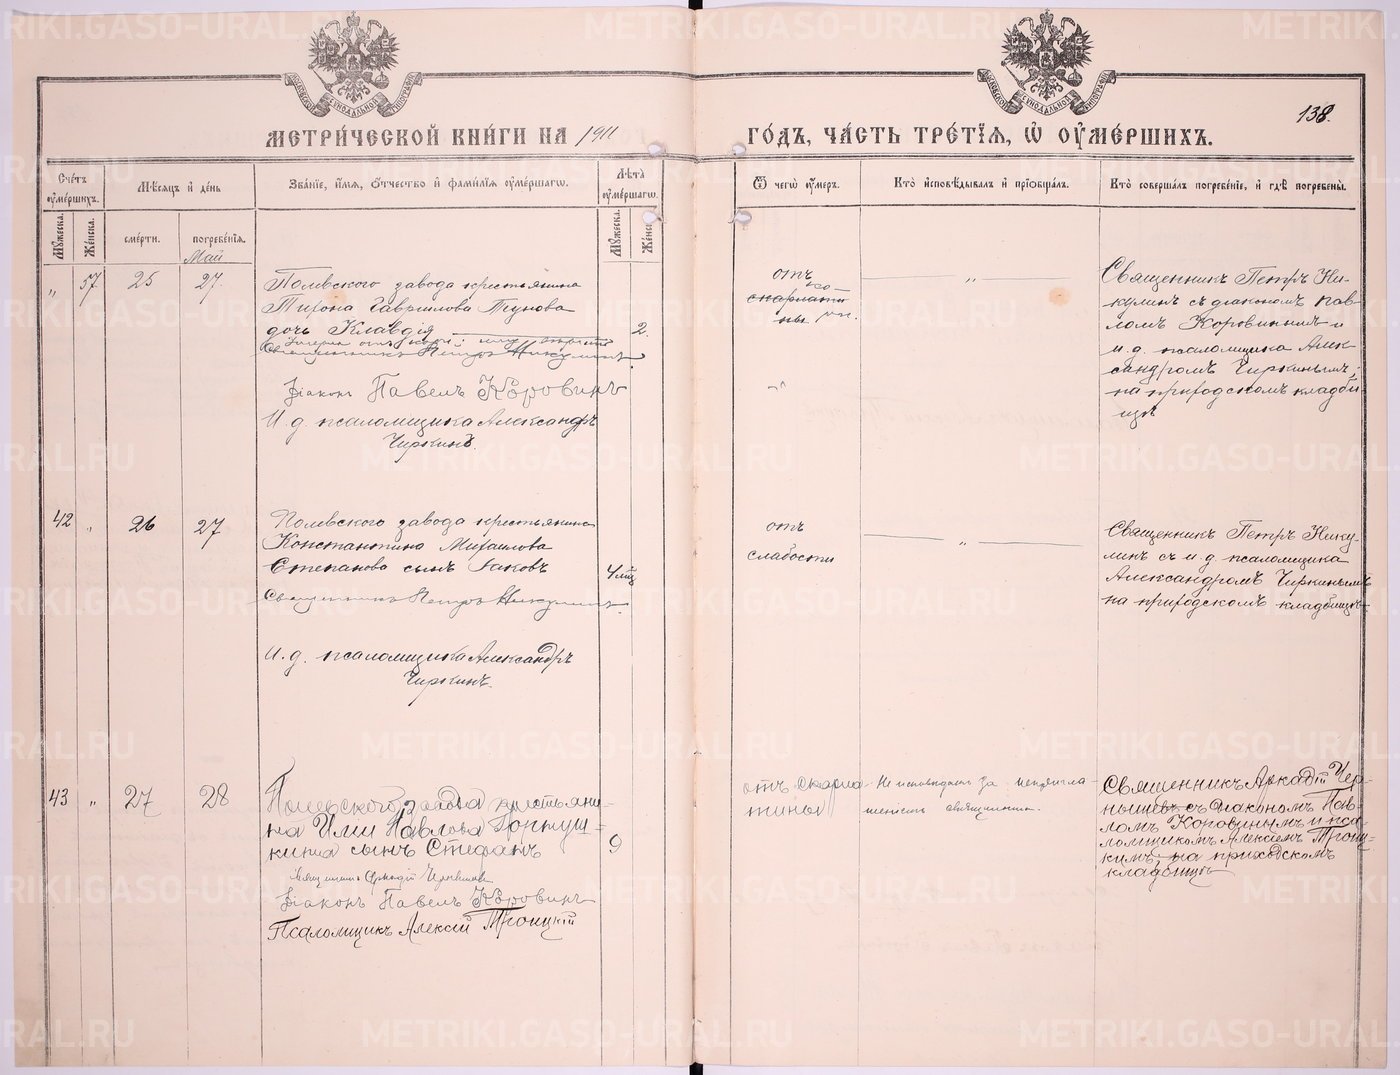 МЕТРИ́ЧЕСКОЙ КНИ́ГИ НА 1911
ГО́ДЪ, ЧА́СТЬ ТРЕ́ТІЯ, Ѡ ОУМЕ́РШИХЪ.
138.
Сче́тъ оуме́ршихъ.
Мѣ́сяцъ и де́нь
Зва́ніе, и́мя, о́тчество и фами́лія оуме́ршагѡ.
Лѣ́та оуме́ршагѡ.
Ѿ чегѡ̀ оу́меръ.
Кто̀ исповѣ́дывалъ и пріобща́лъ.
Кто̀ соверша́лъ погребе́ніе, и гдѣ̀ погребены̀.
Му́жеска.
Же́нска.
сме́рти.
погребе́нія.
Му́жеска.
Же́нс
Май
„ 57 25 27.
Полевского завода крестьянина
Тирона Гавриилова Тунова
дочь Клавдія
2.
Священникъ Петръ Никулинъ
Діаконъ Павелъ Коровинъ
И. д. псаломщика Александръ
Чиркинъ.
отъ
Священникъ Петръ Ни-
кулинъ съ діакономъ Пав-
ломъ Коровинымъ и
и. д. псаломщика Алек-
сандромъ Чиркинымъ;
на приходскомъ кладби-
щѣ
42 „ 26 27
Полевского завода крестьянина
Константина Михаилова
Степанова сынъ Іаковъ
4 мѣц
Священникъ Петръ Никулинъ.
И. д. псаломщика Александръ
Чиркинъ.
отъ
слабости
„
Священникъ Петръ Нику-
линъ съ и. д. псаломщика
Александромъ Чиркинымъ
на приходскомъ кладбищѣ.
43 „ 27 28
Полевского завода крестьяни-
на Иліи Павлова
сынъ Стефанъ
9
Священникъ Аркадій Чернышевъ
Діаконъ Павелъ Коровинъ
Псаломщикъ Алексій Троицкій
отъ скарла-
тины
Не исповѣданъ за непригла-
шеніемъ священника.
Священникъ Аркадій Чер-
нышевъ съ діакономъ Пав-
ломъ Коровинымъ и пса-
ломщикомъ Алексіемъ Троиц-
кимъ; на приходскомъ
кладбищѣ
METRIKI.GASO-URAL.RU